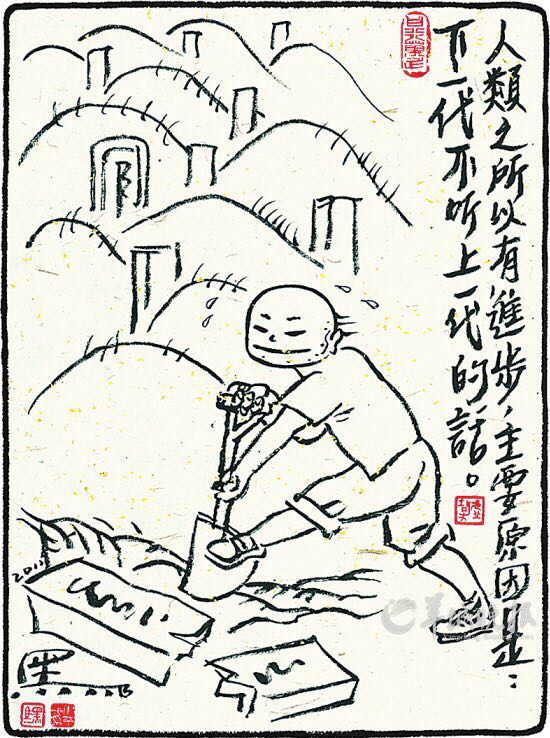 人類之所以有進步，主要原因是：
下一代不听上一代的話。
2011